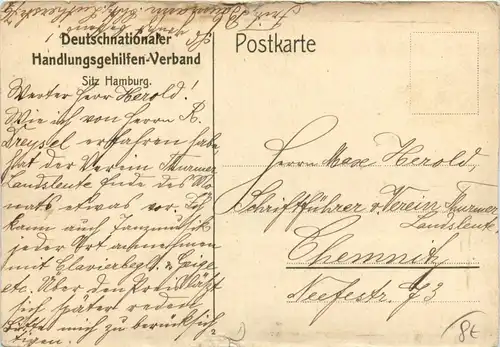 Deutschnationaler
Handlungsgehilfen-Verband
Sitz Hamburg.
Postkarte
Werter Herr Herold!
Wie ich von Herrn R.
Dreysel erfahren habe
hat der Verein Thurmer
Landsleute Ende des Mo-
nats etwas vor. Ich
kann auch Tanzmusik
jeder Art annehmen
mit Clavierbegl. & Geige
etc. Über den Preis läßt
sich später reden
Bitte mich zu berücksich-
tigen.
Herrn Max Herold,
Schriftführer v. Verein Thurmer
Landsleute
Chemnitz
Neefestr. 73
8€